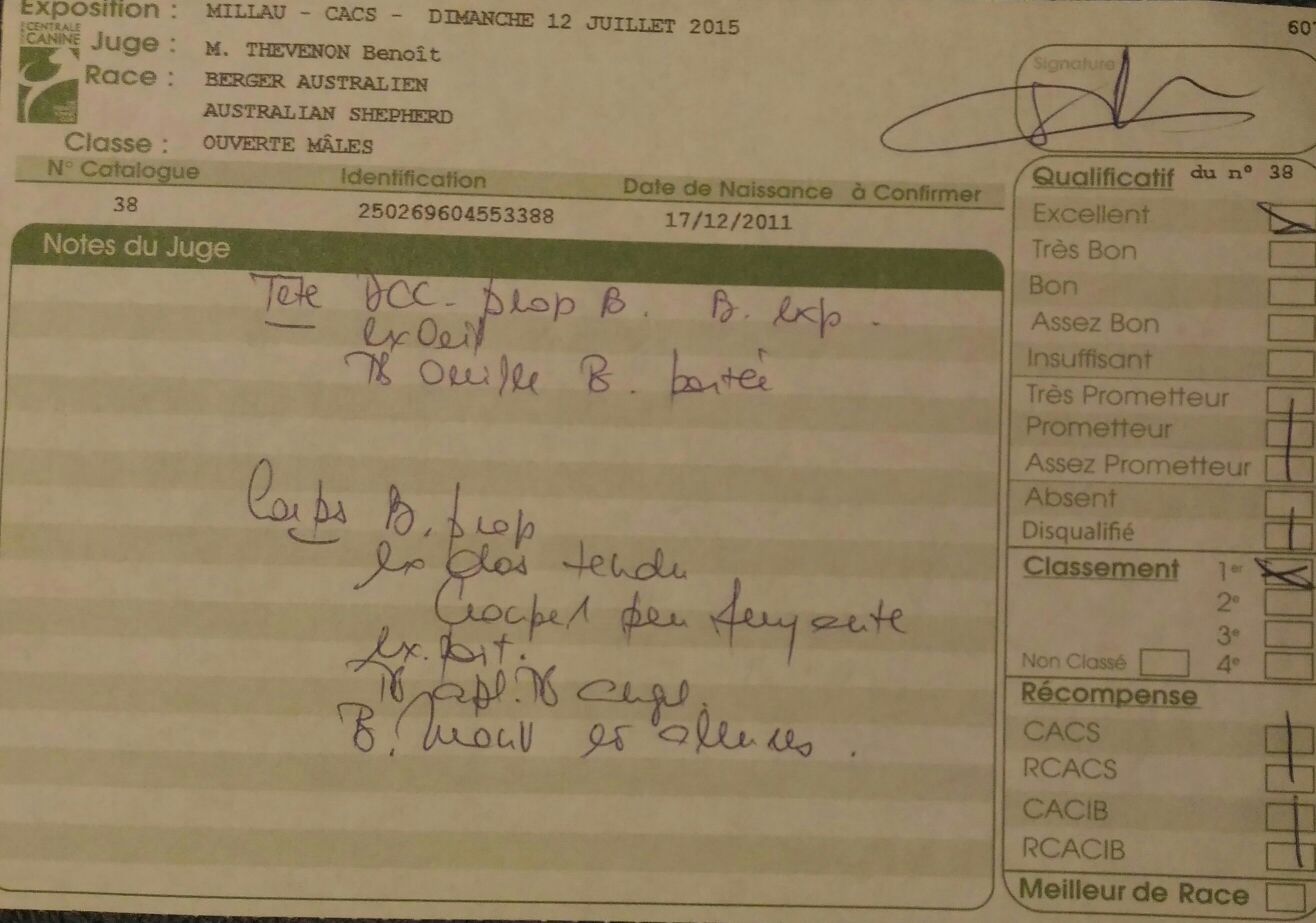 Exposition : MILLAU - CACS - DIMANCHE 12 JUILLET 2015
60
CENTRALE
CANINE
Juge : M. THEVENON Benoît
Race : BERGER AUSTRALIEN
AUSTRALIAN SHEPHERD
Classe : OUVERTE MÂLES
Signature
N° Catalogue Identification Date de Naissance à Confirmer
38 250269604553388 17/12/2011
Notes du Juge
Tete DCC. prop B. B. exp.
ex Oeil
TB Oreille B. portée
Corps B. prop
ex dos tendu
Croupe peu fuyante
ex. poit.
TB apl. TB angl.
B. Mouv et allures.
Qualificatif du n° 38
Excellent
Très Bon
Bon
Assez Bon
Insuffisant
Très Prometteur
Prometteur
Assez Prometteur
Absent
Disqualifié
Classement 1er
2e
3e
Non Classé 4e
Récompense
CACS
RCACS
CACIB
RCACIB
Meilleur de Race